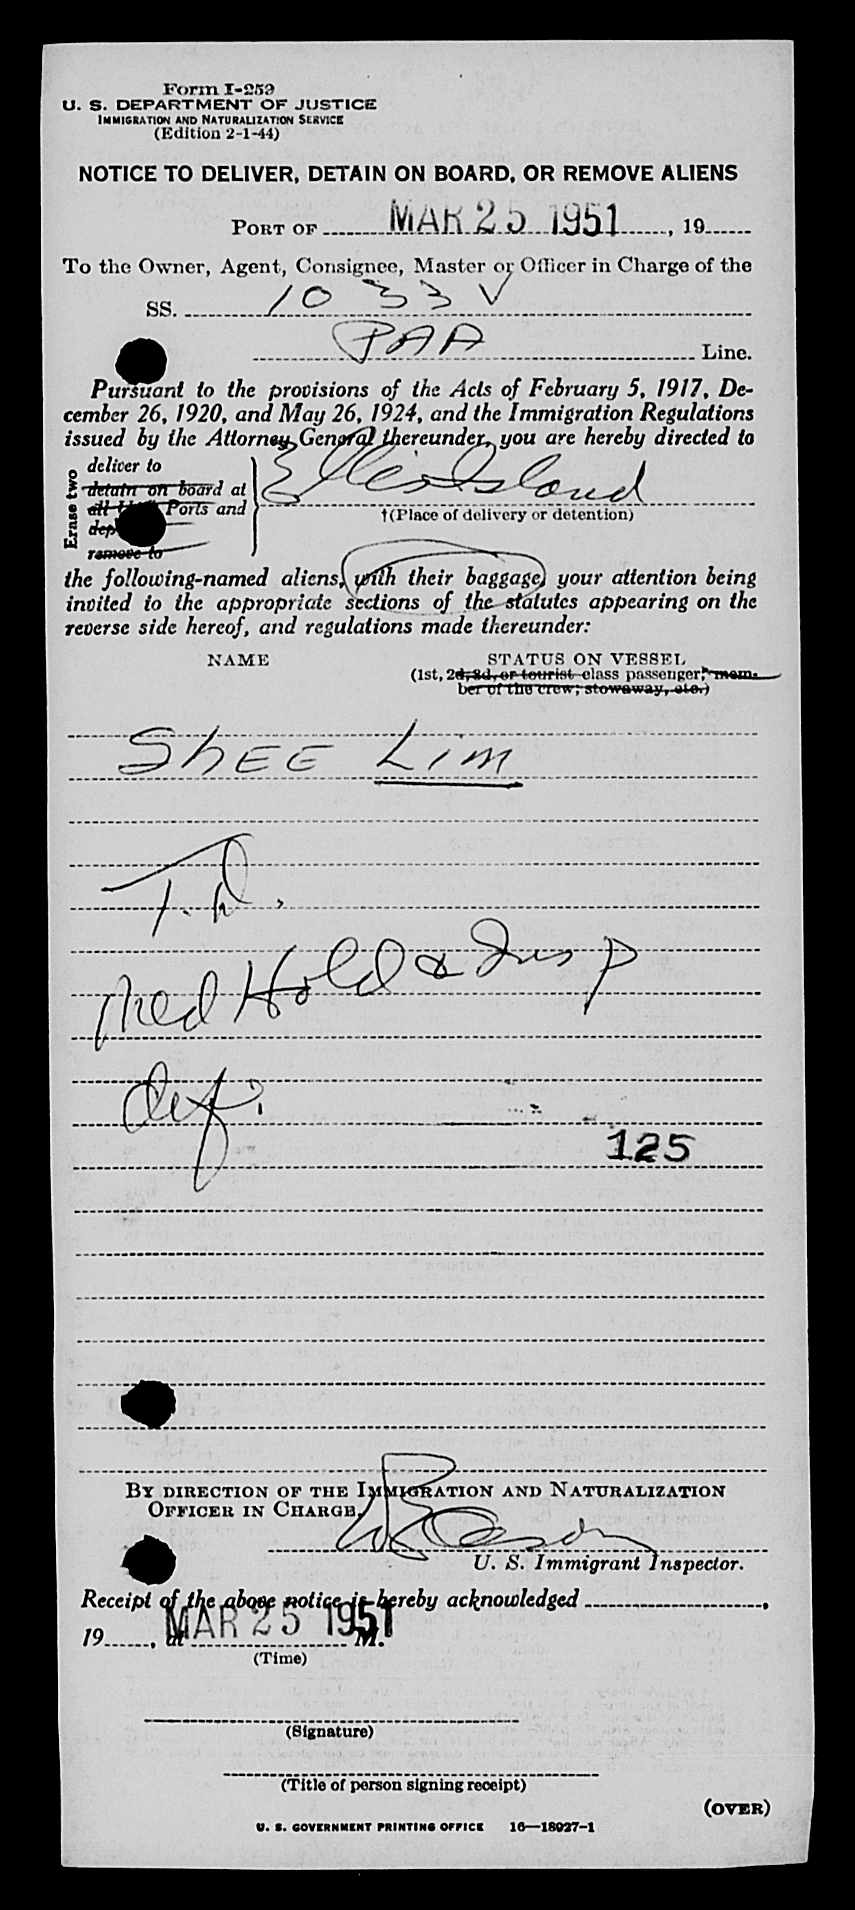 Form I-259
U. S. DEPARTMENT OF JUSTICE
IMMIGRATION AND NATURALIZATION SERVICE
(Edition 2-1-44)
NOTICE TO DELIVER, DETAIN ON BOARD, OR REMOVE ALIENS
PORT OF MAR 25 1951, 19
To the Owner, Agent, Consignee, Master or Officer in Charge of the
SS. 1033 V
PAA Line.
Pursuant to the provisions of the Acts of February 5, 1917, De-
cember 26, 1920, and May 26, 1924, and the Immigration Regulations
issued by the Attorney General thereunder, you are hereby directed to
Erase two
deliver to
detain on board at
all Ports and
remove to
Ellis Island
†(Place of delivery or detention)
the following-named aliens, with their baggage, your attention being
invited to the appropriate sections of the statutes appearing on the
reverse side hereof, and regulations made thereunder:
NAME STATUS ON VESSEL
(1st, 2d, 3d, or tourist class passenger, mem-
ber of the crew; stowaway, etc.)
SHEE LIM
Med Hold & Insp
def.
125
BY DIRECTION OF THE IMMIGRATION AND NATURALIZATION
OFFICER IN CHARGE,
U. S. Immigrant Inspector.
Receipt of the above notice is hereby acknowledged ,
MAR 25 1951
19 , at M.
(Time)
(Signature)
(Title of person signing receipt)
(OVER)
U. S. GOVERNMENT PRINTING OFFICE 16—18927-1